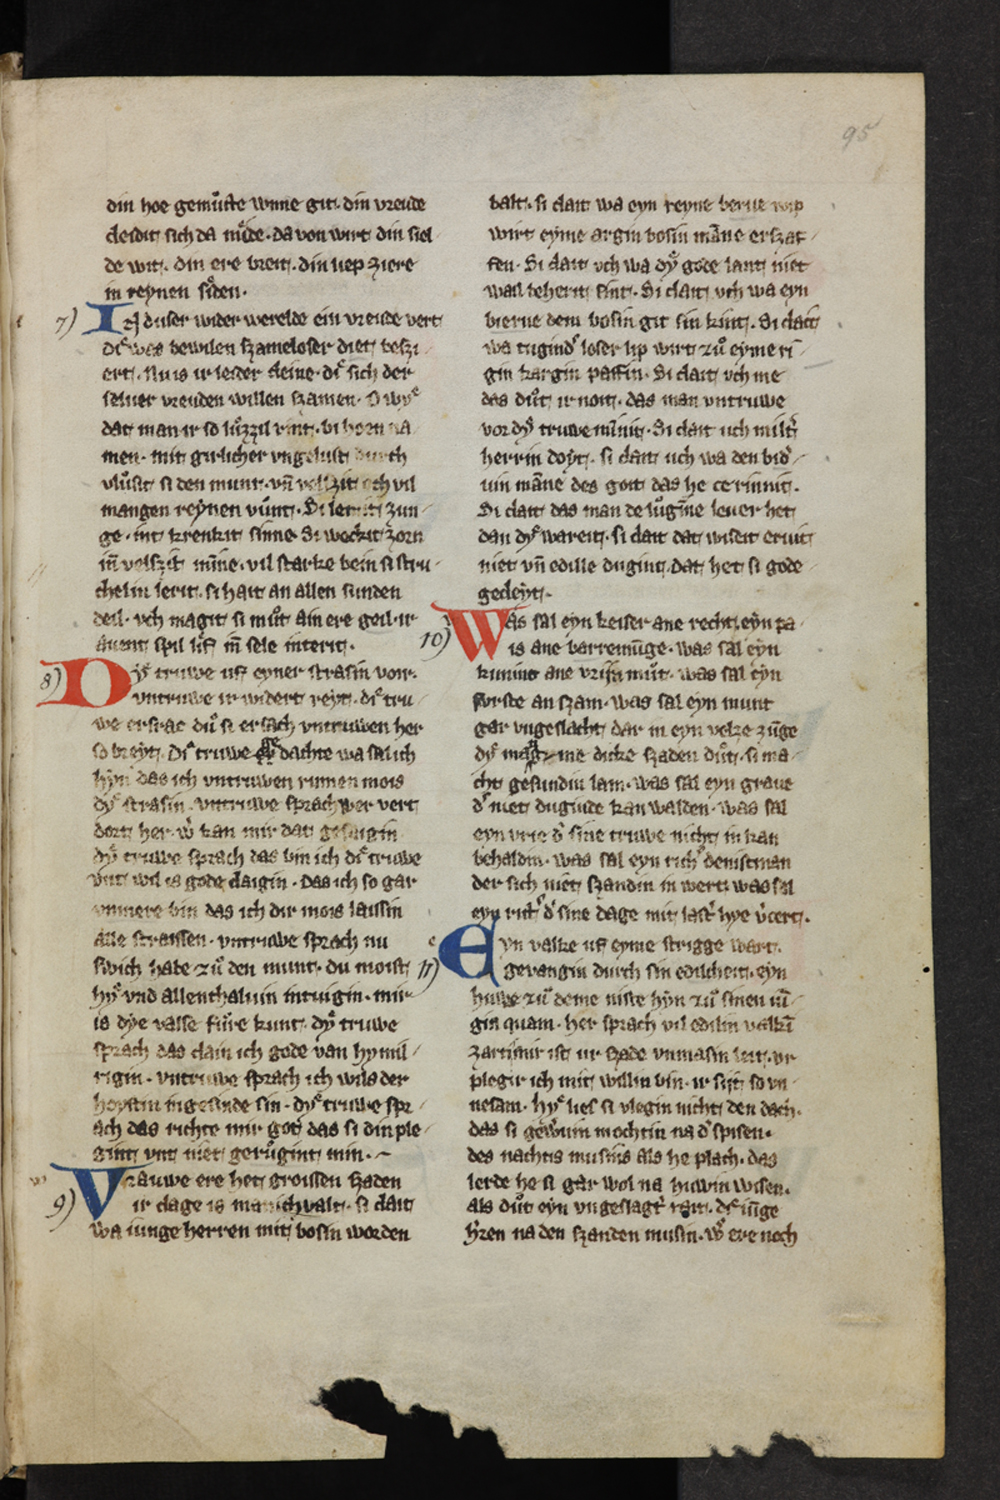 95
din hoe gemuͦte wnne git. din vreude
cleidit sich da mide. da von wirt din sel
de wit. din ere breit. din liep ziere
in reynen siden.
7) IN diser wider werelde ein vreude vert
di was bewilen szameloser diet beszi
ert. Nu is ir leider cleine. di sich der
seluer vreuden willen szamen. O wy
dat man ir so luͦzzil vint. bi
men. mit girlicher vngelust durch
vluͦsit si den munt. vn̄ och vil
mangen reynen vuͦnt. Di zun
ge. int krenkit sinne. Si weckit zorn
in̄ velszit mīne. vil starke bein si stru
chelin lerit. si hait an allen sunden
deil. vch magit si muͦt ain ere geil. ir
auent spil lif in̄ sele interit.
8) Dy truwe uff eyner strasin voir.
vntruwe ir widert reyt. di tru
we ersrac duͦ si ersach vntruwen her
so breyt. Di truwe dachte wa sal ich
hyn das ich vntruwen rumen mois
dy strasin. vntruwe sprach wer vert
dort her. w̓ kan mir dat gesagin
dy truwe sprach das bin ich di truwe
vnt wil is gode clagin. das ich so gar
vnmere bin das ich dir mois laissin
alle straissen. vntruwe sprach nu
swich habe zuͦ den munt. du moist
hy vnd allenthaluin intwigin. mir
is dye valsse fuͦre kunt. dy truwe
sprach das clain ich gode van hymil
rigin. vntruwe sprach ich wils der
hoystin ingesinde sin. dy truwe spr
ach das richte mir got das si din ple
gint vnt niet geruͦgint min.
9) Vrauwe ere het groissen szaden
ir clage is manichualt. si clait
wa iunge herren mit bosin worden
balt. si clait wa eyn reyne berue wip
wirt eyme argin bosin māne erszaf
fen. Si clait vch wa dy gode lant niet
wail beherit sint. Si clait vch wa eyn
bierue dem bosin git sin kint. Si clait
wa tugind̓ loser lip wirt zuͦ eyme ri
gin kargin paffin. Si clait vch me
das duͦt ir noit. das man vntruwe
vor dy truwe mīnit. Si clait uch milt̓
herrin doyt. si clait uch wa den bid̓
uin māne des goit das he cerinnit.
Si clait das man de luͦgīne leuer het
dan dy wareit. si clait dat wiseit eruit
niet vn̄ edille dugint. dat het si gode
gecleyt.
10) Was sal eyn keiser ane recht. eyn pa
is ane barremuͦge. was sal eyn
kuninc ane vrijn muͦt. was sal eyn
worste an szam. was sal eyn munt
gar vngeslacht dar in eyn velze zuͦge
dy me dicke szaden duͦt. si ma
cht gesundin lam. was sal eyn graue
d̓ niet duginde kan walden. was sal
eyn vrie d̓ sine truwe nicht in kan
behaldin. was sal eyn rich̓ denistman
der sich niet szandin in wert was sal
eyn rich̓ d̓ sine dage mit last̓ hye v̓cert.
11) Eyn valke uff eyme strigge wart.
gevangin durch sin edilcheit. eyn
huwe zuͦ deme niste hyn zuͦ sinen iū
gin quam. her sprach vil edilin valkī
zart mir ist ur szade vnmasin leit. ur
plegir ich mit willin bin. ir sijt so vn
nesam. hy lies si vlegin nicht den dach.
das si gewuin mochtin na d̓ spisen.
des nachtis musins als he plach. das
lerde he si gar wol na huwin wisen.
als duͦt eyn vngeslagt̓ rait. di iūge
h̓ren na den szanden musin. w̓ ere noch